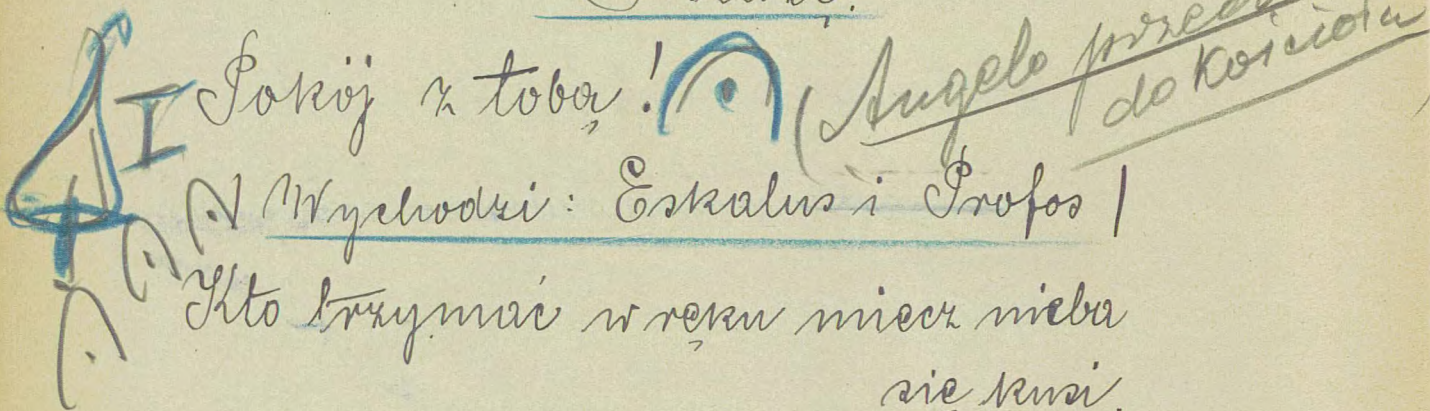 I Pokój z tobą!
(Angelo
do kościoła
Wychodzi: Eskalus i Profos
Kto trzymać w ręku miecz nieba
się kusi